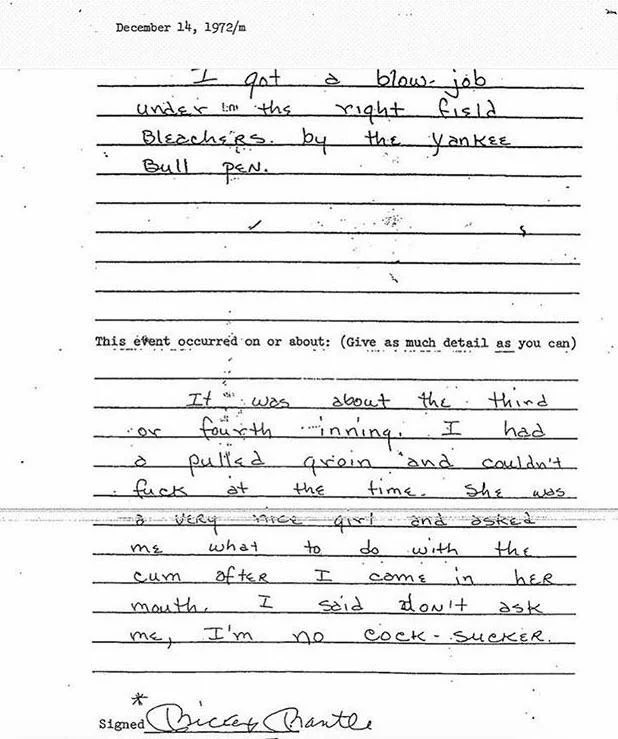 December 14, 1972/m
I got a blow-job
under in the right field
Bleachers. by the Yankee
Bull pen.
This event occurred on or about: (Give as much detail as you can)
It was about the third
or fourth inning. I had
a pulled groin and couldn't
fuck at the time. She was
a very nice girl and asked
me what to do with the
cum after I came in her
mouth. I said don't ask
me, I'm no cock-sucker.
*
Signed Mickey Mantle